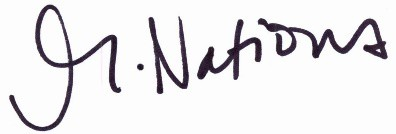 M. Nations